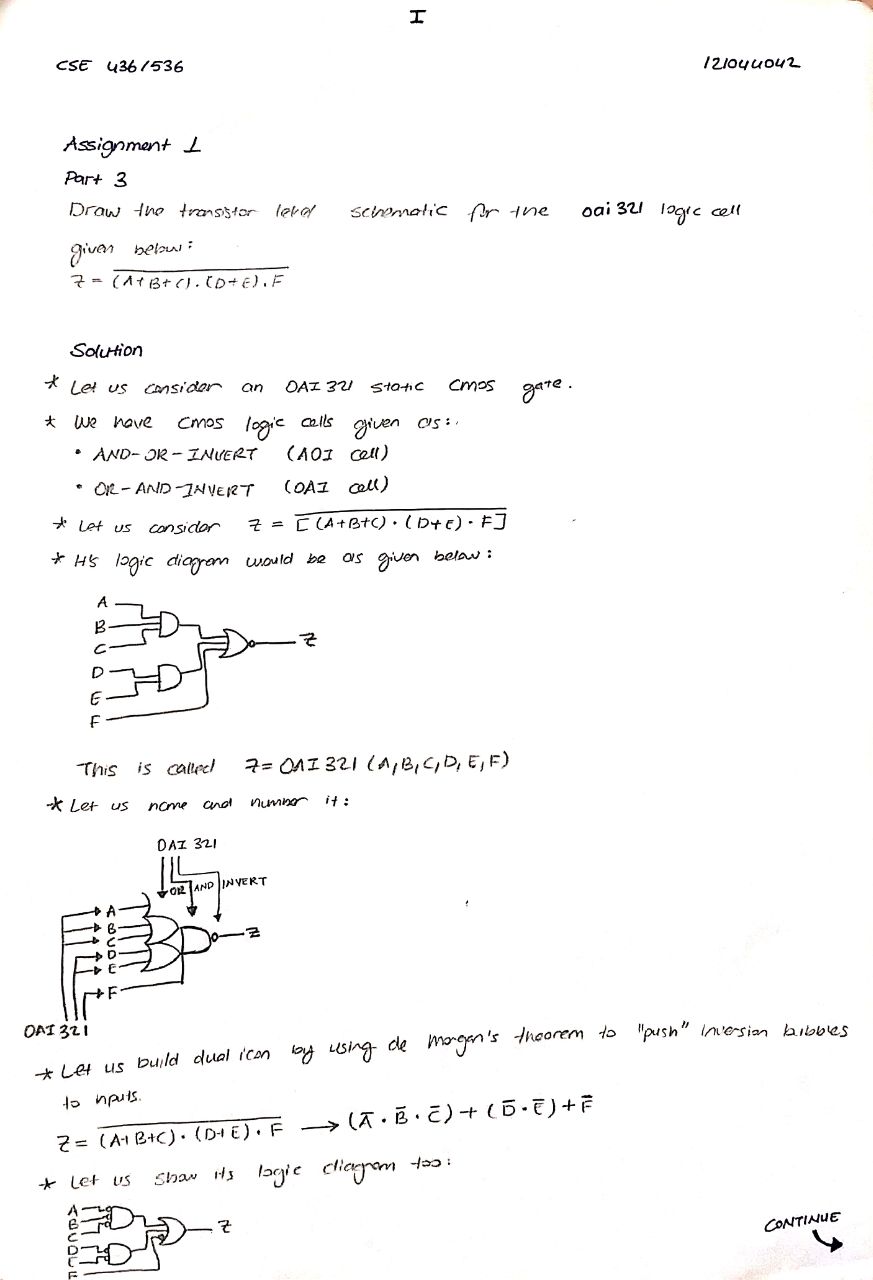 I
CSE 436/536
121044042
Assignment 1
Part 3
Draw the transistor level schematic for the oai 321 logic cell
given below:
Z = \overline{(A+B+C).(D+E).F}
Solution
* Let us consider an OAI 321 static cmos gate.
* We have cmos logic cells given as:
• AND-OR-INVERT (AOI cell)
• OR-AND-INVERT (OAI cell)
* Let us consider Z = \overline{[(A+B+C)·(D+E)·F]}
* It's logic diagram would be as given below:
A
B
C
D
E
F
Z
This is called Z=OAI321 (A,B,C,D,E,F)
* Let us name and number it:
OAI 321
OR AND INVERT
A
B
C
D
E
F
Z
OAI321
* Let us build dual icon by using de Morgan's theorem to "push" inversion bubbles
to inputs.
Z = \overline{(A+B+C)·(D+E)·F} → (Ā·B̄·C̄)+(D̄·Ē)+F̄
* Let us show its logic diagram too:
A
B
C
D
E
F
Z
CONTINUE